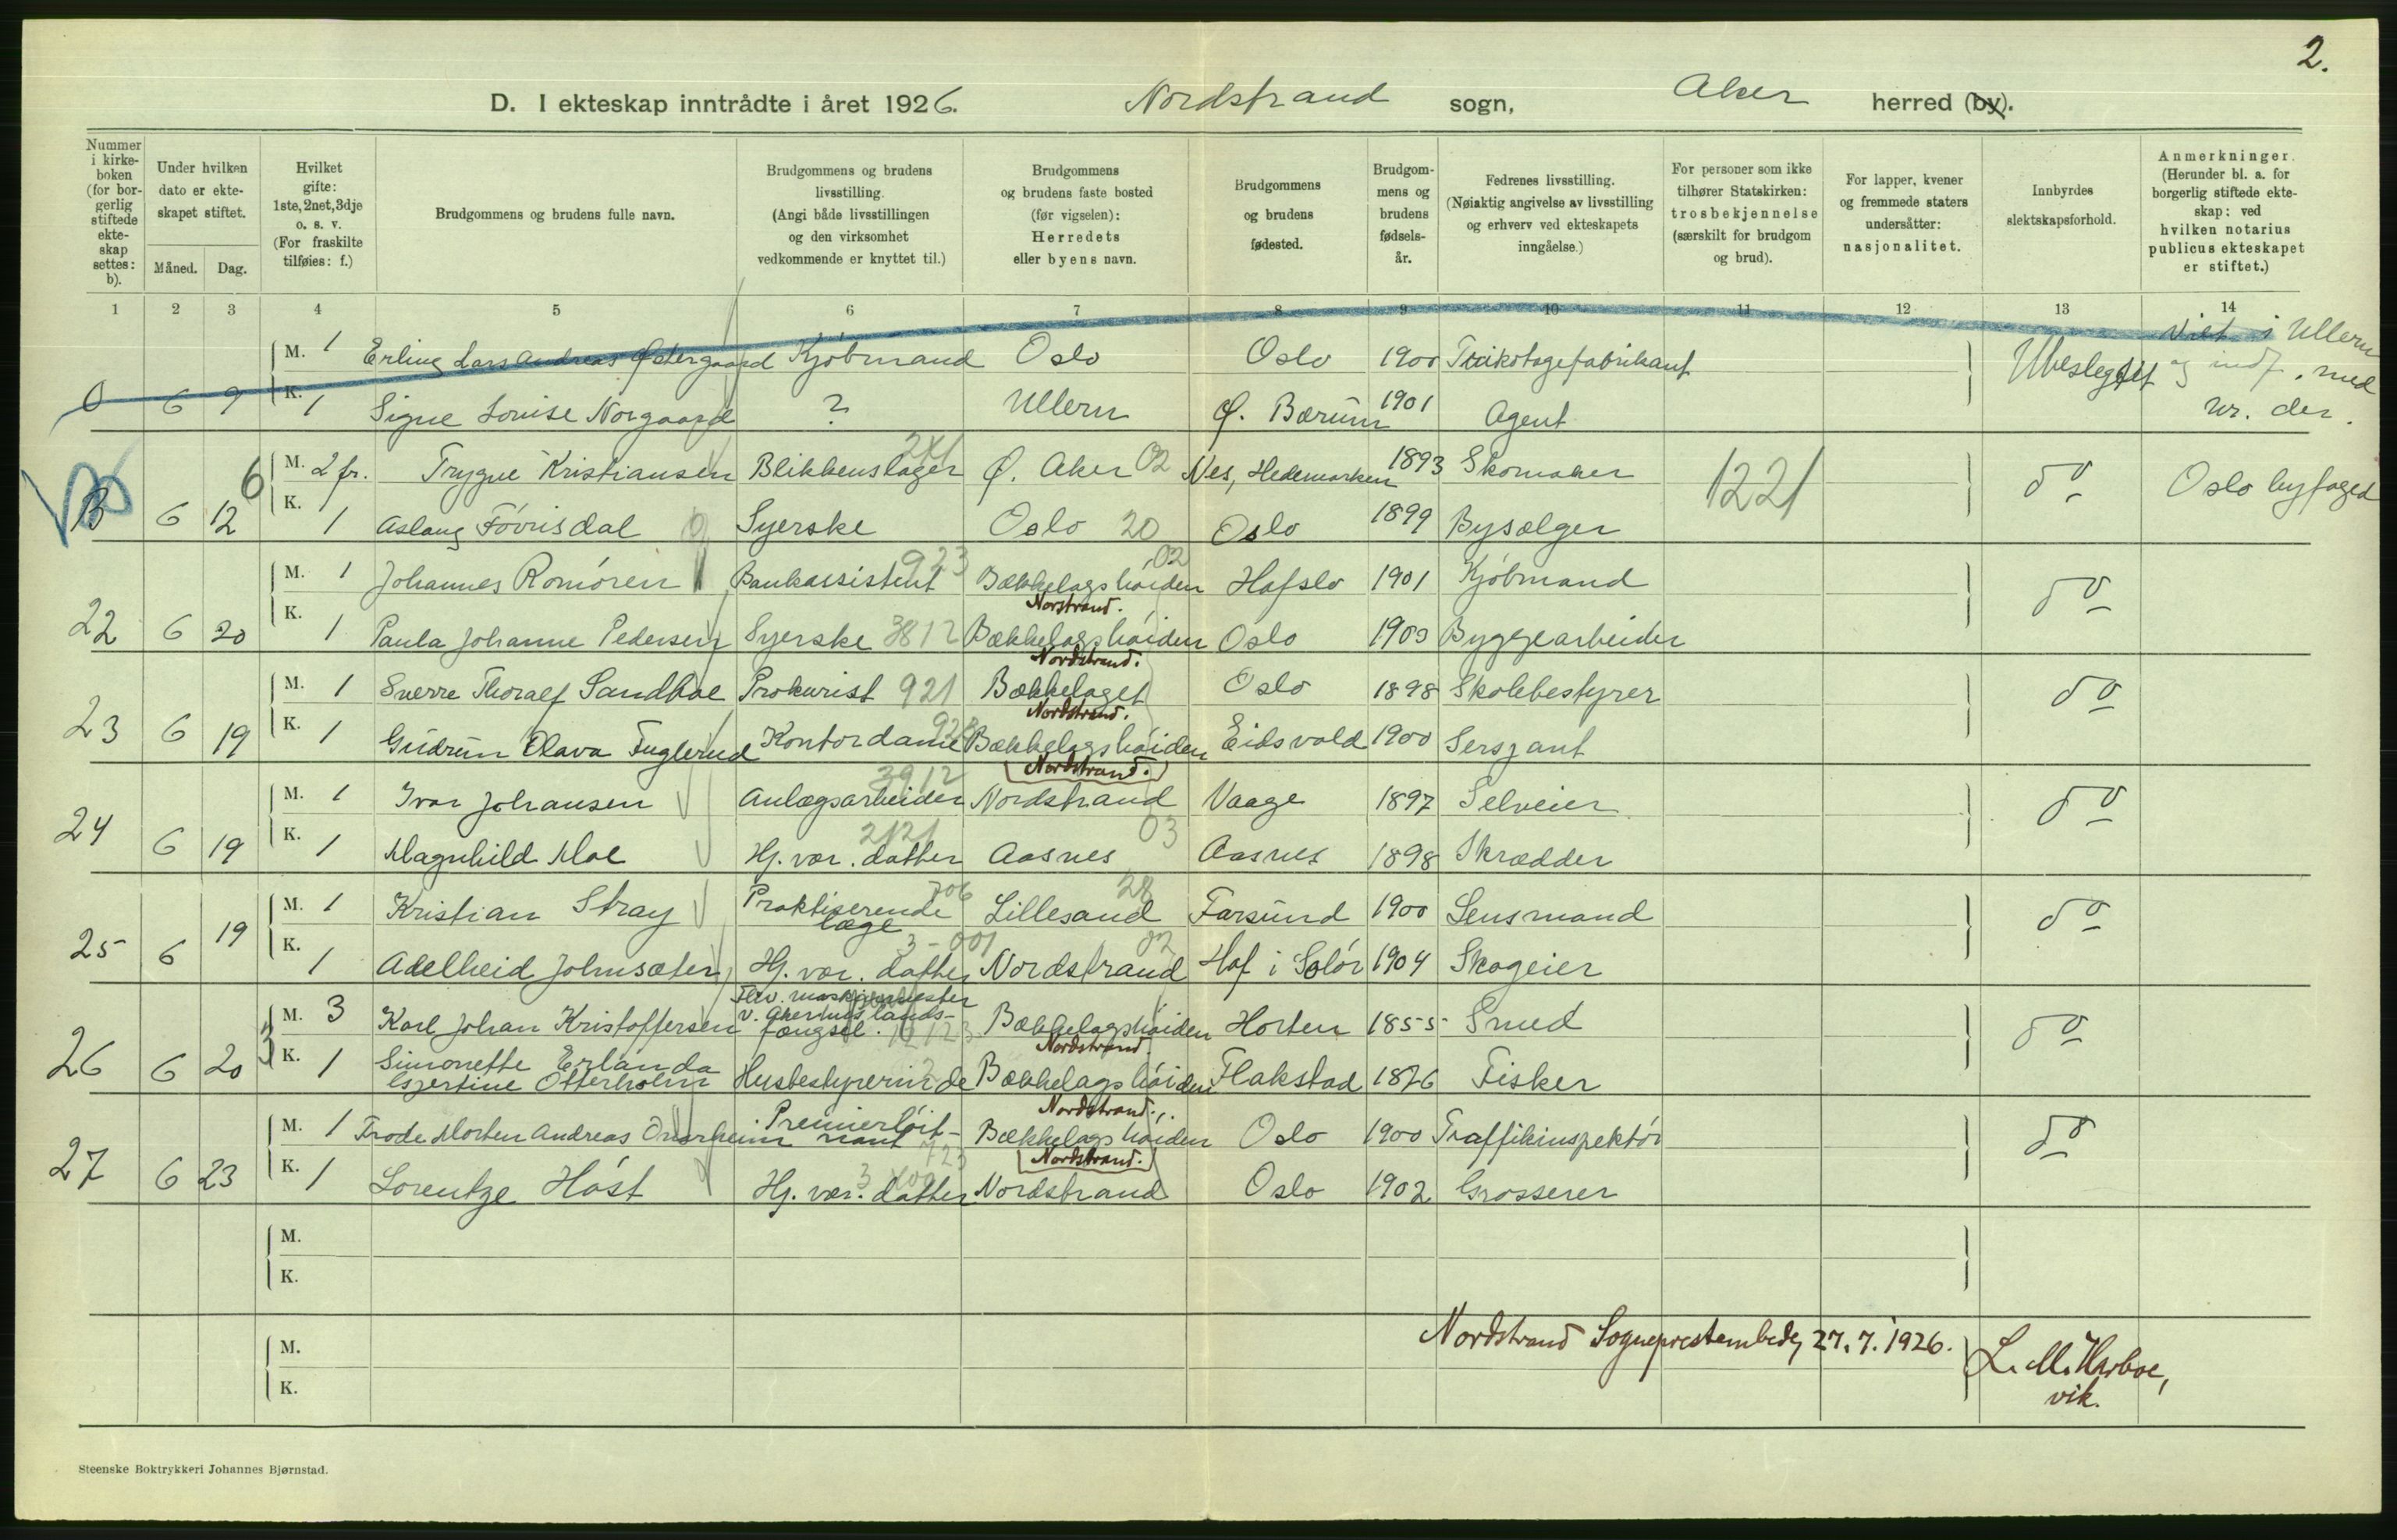 2.
D. I ekteskap inntrådte i året 1926. Nordstrand sogn, Aker herred (by).
Nummer i kirkeboken (for borgerlig stiftede ekteskap settes: b).
Under hvilken dato er ekteskapet stiftet.
Måned. Dag.
Hvilket gifte: 1ste, 2net, 3dje o. s. v. (For fraskilte tilføies: f.)
Brudgommens og brudens fulle navn.
Brudgommens og brudens livsstilling. (Angi både livsstillingen og den virksomhet vedkommende er knyttet til.)
Brudgommens og brudens faste bosted (før vigselen): Herredets eller byens navn.
Brudgommens og brudens fødested.
Brudgommens og brudens fødselsår.
Fedrenes livsstilling. (Nøiaktig angivelse av livsstilling og erhverv ved ekteskapets inngåelse.)
For personer som ikke tilhører Statskirken: trosbekjennelse (særskilt for brudgom og brud).
For lapper, kvener og fremmede staters undersåtter: nasjonalitet.
Innbyrdes slektskapsforhold.
Anmerkninger. (Herunder bl. a. for borgerlig stiftede ekteskap: ved hvilken notarius publicus ekteskapet er stiftet.)
1 2 3 4 5 6 7 8 9 10 11 12 13 14
M. 1 Erling Lars Andreas Østergaard Kjöbmand Oslo Oslo 1900 Trikotagefabrikant Ubeslegtet Viet i Ullern
0 6 9 K. 1 Signe Louise Norgaard ? Ullern Ø. Bærum 1901 Agent og indf. med nr. der.
M. 2 fr. Trygve Kristiansen Blikkenslager Ø. Aker 02 Nes, Hedemarken 1893 Skomaker 1221 do Oslo byfoged
B 6 12 K. 1 Aslaug Fövrisdal Syerske Oslo 20 Oslo 1899 Bysælger
M. 1 Johannes Romören Bankassistent 923 Bækkelagshöiden 02 Hafslo 1901 Kjöbmand do
Norstrand.
22 6 20 K. 1 Paula Johanne Pedersen Syerske 3812 Bækkelagshöiden Oslo 1903 Byggearbeider
Nordstrand.
M. 1 Sverre Thoralf Sandboe Prokurist 921 Bækkelaget Oslo 1898 Skolebestyrer do
Nordstrand.
23 6 19 K. 1 Gudrun Olava Fuglerud Kontordame Bækkelagshöiden Eidsvold 1900 Sersjant
(Nordstrand.)
M. 1 Ivar Johansen Anlægsarbeider 3912 Nordstrand Vaage 1897 Selveier do
24 6 19 K. 1 Magnhild Moe Hj. vær. datter 2121 Aasnes 03 Aasnes 1898 Skrædder
M. 1 Kristian Stray Praktiserende læge 706 Lillesand 28 Farsund 1900 Lensmand do
25 6 19 K. 1 Adelheid Johnsæter Hj. vær. datter 3-001 Nordstrand 02 Hof i Solör 1904 Skogeier
M. 3 Karl Johan Kristoffersen Fhv. maskinmester v. Akershus landsfængsel. Bækkelagshöiden Horten 1855 Smed do
Nordstrand.
26 6 20 K. 1 Simonette Erlanda Gjertine Otterholm Husbestyrerinde Bækkelagshöiden Flakstad 1876 Fisker
Nordstrand.
M. 1 Frode Morten Andreas Onarheim Premierlöitnant 723 Bækkelagshöiden Oslo 1900 Traffikinspektör do
(Nordstrand.)
27 6 23 K. 1 Lorentze Höst Hj. vær. datter Nordstrand Oslo 1902 Grosserer
M.
K.
M.
K.
Nordstrand Sogneprestembede, 27.7.1926.
L. M. Harboe,
vik.
Steenske Boktrykkeri Johannes Bjørnstad.